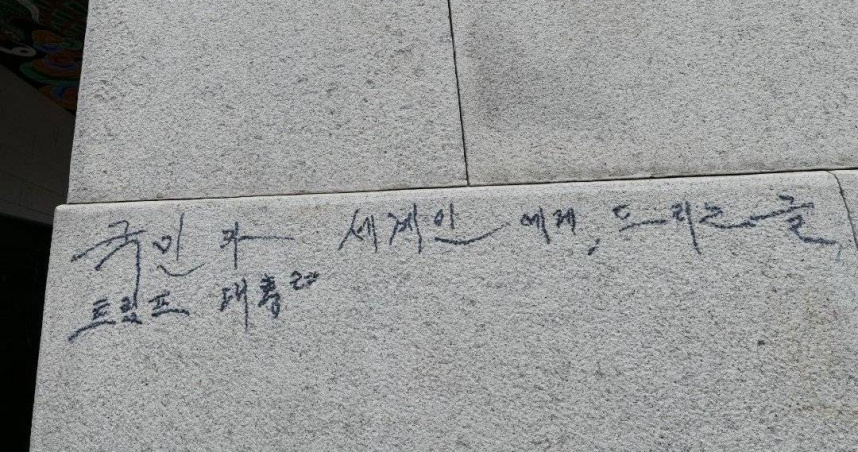 국민과 세계인 에게, 드리는 글,
트럼프 대통령